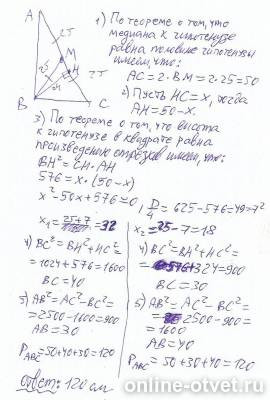 A
25
M
H
25
24
25
B
C
1) По теореме о том, что
медиана к гипотенузе
равна половине гипотенузы
имеем, что:
AC = 2·BM = 2·25 = 50
2) Пусть HC = x, тогда
AH = 50 - x.
3) По теореме о том, что высота
к гипотенузе в квадрате равна
произведению отрезков имеем, что:
BH² = CH·AH
576 = x·(50-x)
x² - 50x + 576 = 0
D/4 = 625 - 576 = 49 = 7²
x₁ = 25+7 = 32
x₂ = 25 - 7 = 18
4) BC² = BH² + HC² =
= 1024 + 576 = 1600
BC = 40
5) AB² = AC² - BC² =
= 2500 - 1600 = 900
AB = 30
P_ABC = 50+40+30 = 120
4) BC² = BH² + HC² =
= 576 + 324 = 900
BC = 30
5) AB² = AC² - BC² =
= 2500 - 900 =
= 1600
AB = 40
P_ABC = 50+30+40 = 120
Ответ: 120 см
online-otvet.ru